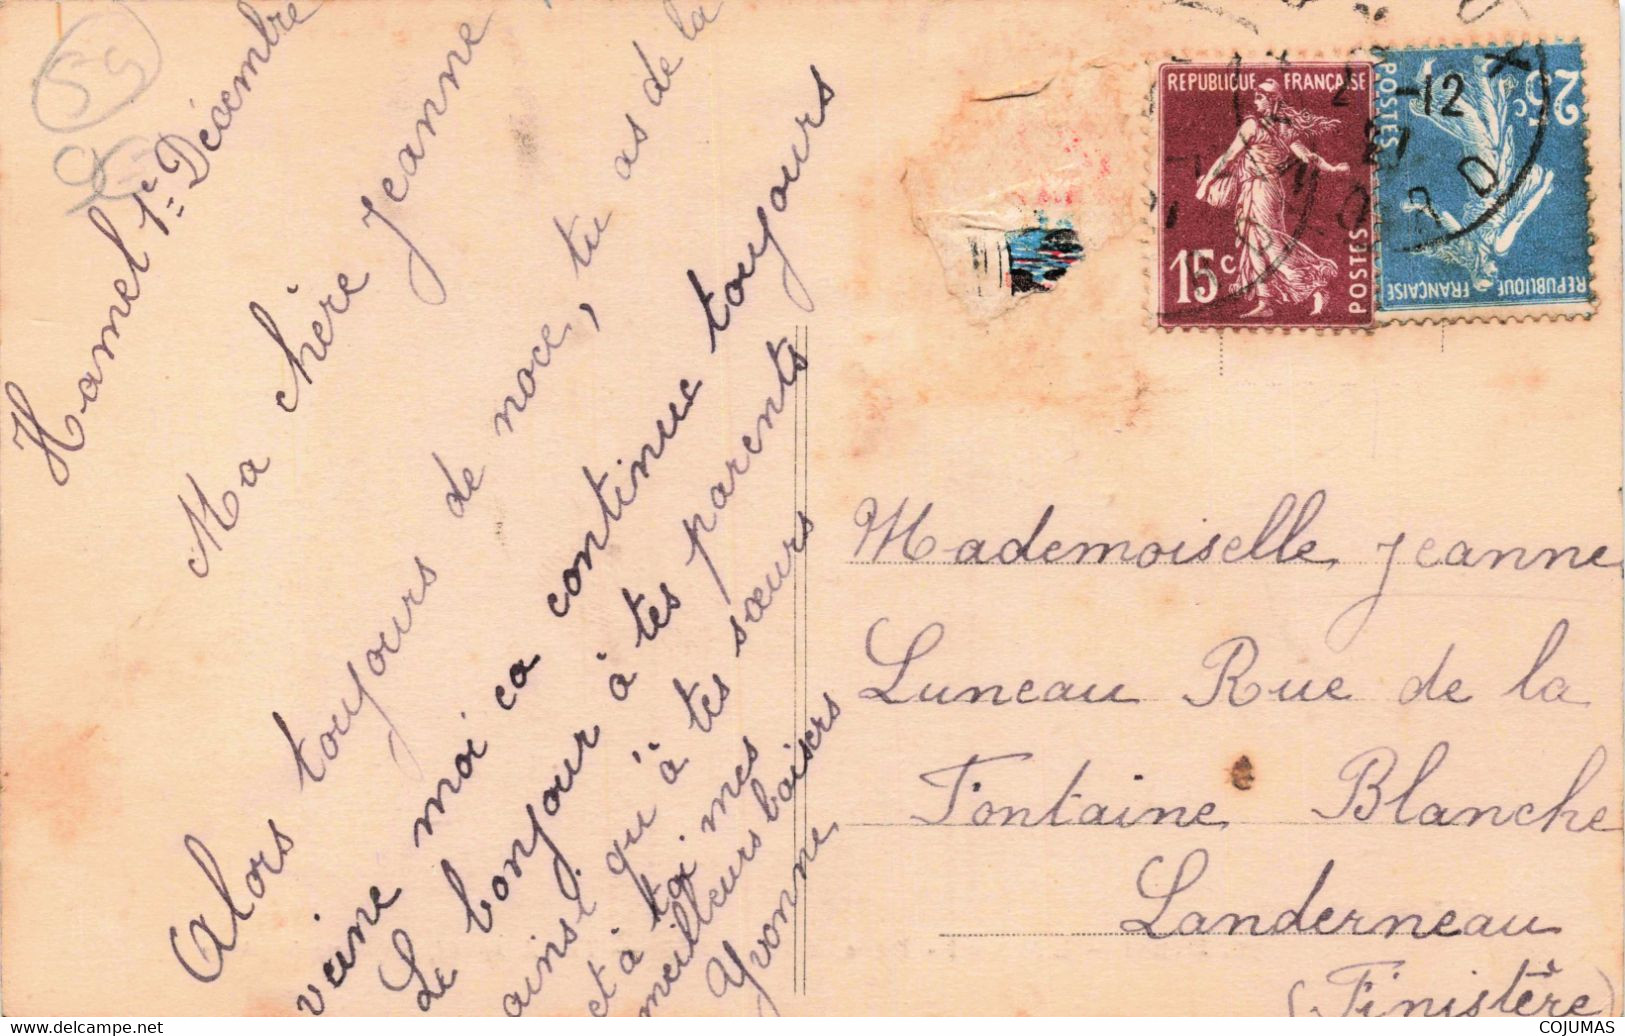 59
Hamel 1er Décembre
Ma chère Jeanne
Alors toujours de noce, tu as de la
veine moi ca continue toujours
Le bonjour à tes parents
ainsi qu'à tes sœurs
et à toi mes
meilleurs baisers
Yvonne
REPUBLIQUE FRANÇAISE
15c
POSTES
REPUBLIQUE FRANÇAISE
25c
POSTES
2 -12
NORD
Mademoiselle Jeanne
Luneau Rue de la
Fontaine Blanche
Landerneau
(Finistère)
www.delcampe.net
COJUMAS